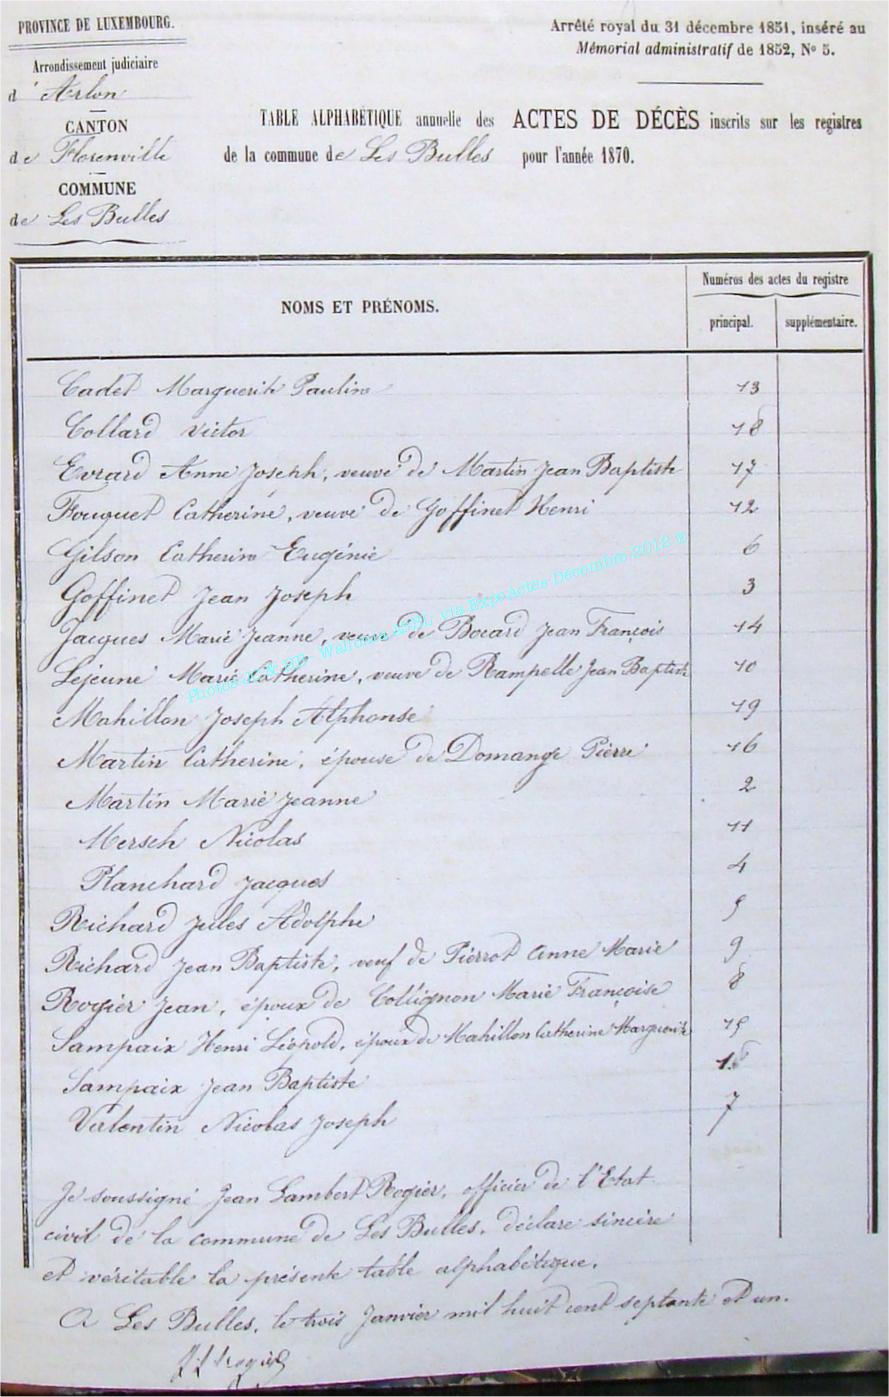 PROVINCE DE LUXEMBOURG.
Arrondissement judiciaire
d'Arlon
CANTON
de Florenville
COMMUNE
de Les Bulles
Arrêté royal du 31 décembre 1851, inséré au
Mémorial administratif de 1852, No 5.
TABLE ALPHABÉTIQUE annuelle des ACTES DE DÉCÈS inscrits sur les registres
de la commune de Les Bulles pour l'année 1870.
NOMS ET PRÉNOMS.
Numéros des actes du registre
principal. supplémentaire.
Cadet Marguerite Pauline 13
Collard Victor 18
Evrard Anne Joseph, veuve de Martin Jean Baptiste 17
Fouquet Catherine, veuve de Goffinet Henri 12
Gilson Catherine Eugénie 6
Goffinet Jean Joseph 3
Jacques Marie Jeanne, veuve de Bocard Jean François 14
Lejeune Marie Catherine, veuve de Rampelle Jean Baptiste 10
Mahillon Joseph Alphonse 19
Martin Catherine, épouse de Domange Pierre 16
Martin Marie Jeanne 2
Mersch Nicolas 11
Planchard Jacques 4
Richard Jules Adolphe 5
Richard Jean Baptiste, veuf de Pierrot Anne Marie 9
Rogier Jean, époux de Collignon Marie Françoise 8
Sampaix Henri Léopold, époux de Mahillon Catherine Marguerite 15
Sampaix Jean Baptiste 1
Valentin Nicolas Joseph 7
Je soussigné Jean Lambert Rogier, officier de l'Etat
civil de la commune de Les Bulles, déclare sincère
et véritable la présente table alphabétique.
A Les Bulles, le trois Janvier mil huit cent septante et un.
J L Rogier
Photos via ExpoActes Décembre 2012 ®